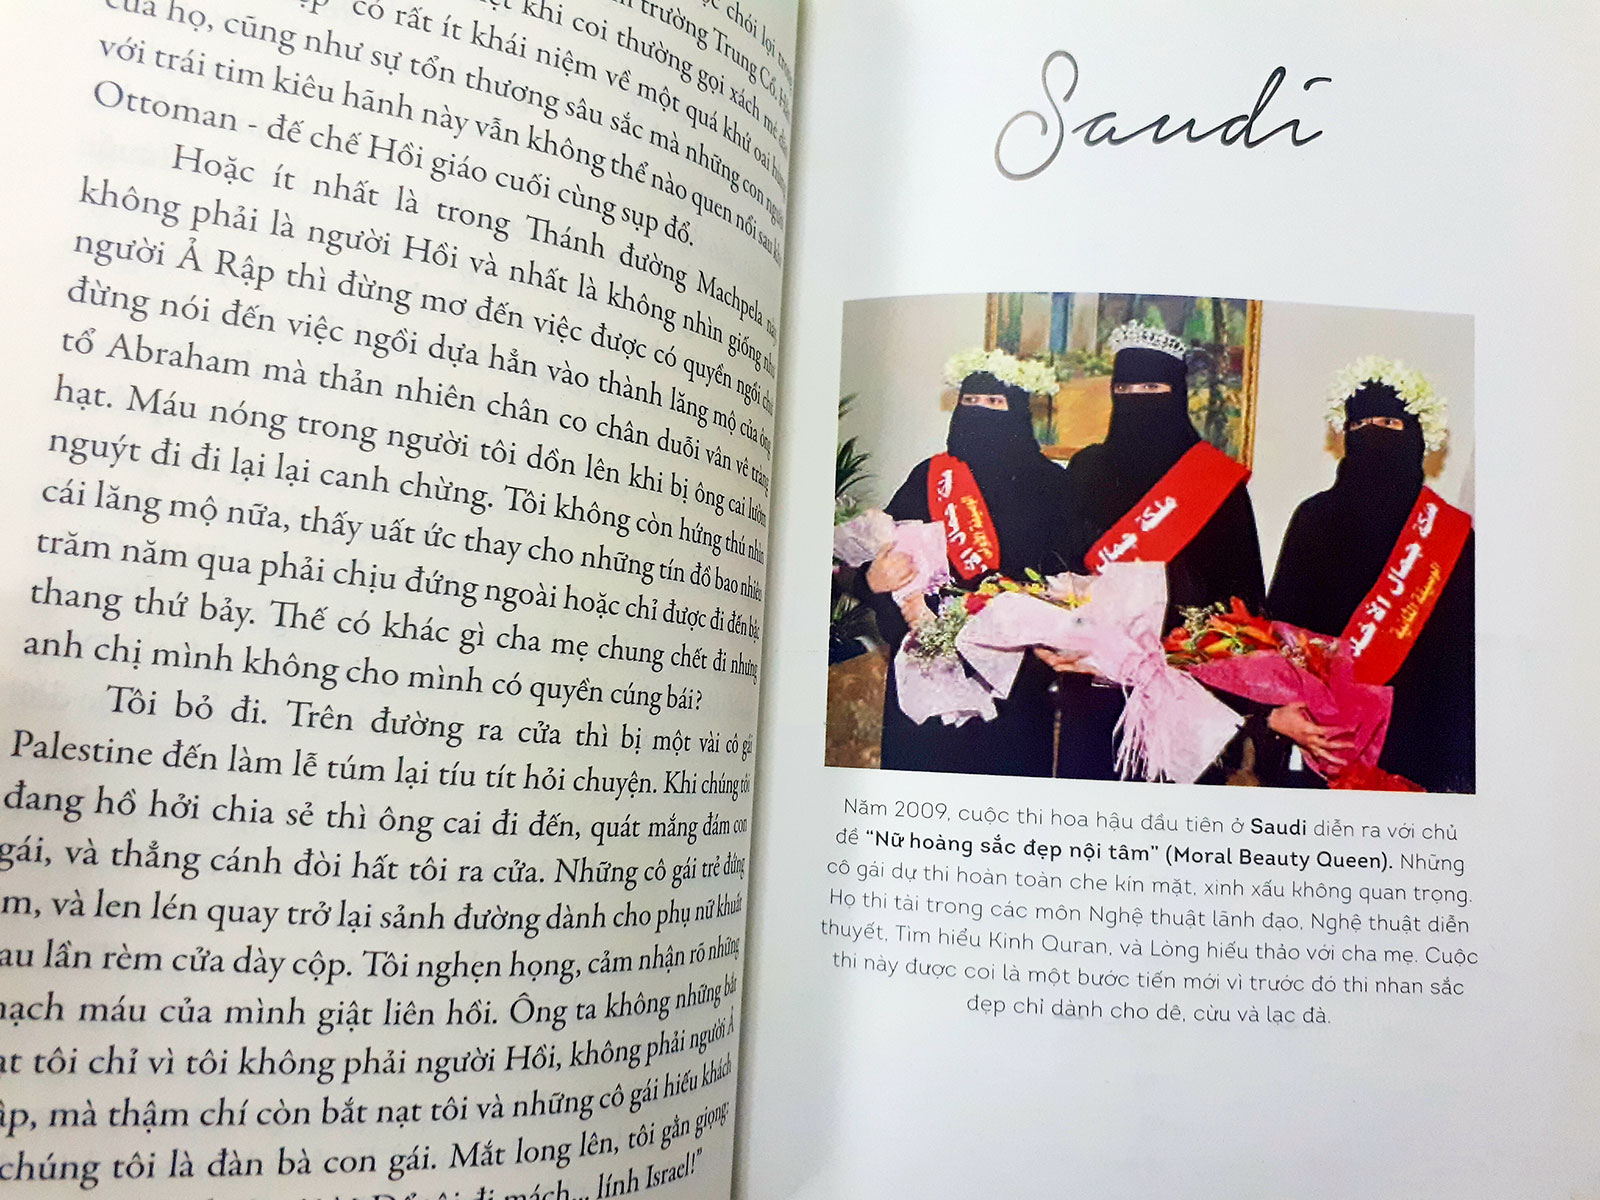 chói lọi trong
khi coi thường gọi xách mé đấy
trường Trung Cổ. Hầu
có rất ít khái niệm về một quá khứ oai hùng
của họ, cũng như sự tổn thương sâu sắc mà những con người
với trái tim kiêu hãnh này vẫn không thể nào quen nổi sau khi
Ottoman - đế chế Hồi giáo cuối cùng sụp đổ.
Hoặc ít nhất là trong Thánh đường Machpela này
không phải là người Hồi và nhất là không nhìn giống như
người Ả Rập thì đừng mơ đến việc được có quyền ngồi chứ
đừng nói đến việc ngồi dựa hẳn vào thành lăng mộ của ông
tổ Abraham mà thản nhiên chân co chân duỗi vân vê tràng
hạt. Máu nóng trong người tôi dồn lên khi bị ông cai lườm
nguýt đi đi lại lại canh chừng. Tôi không còn hứng thú nhìn
cái lăng mộ nữa, thấy uất ức thay cho những tín đồ bao nhiêu
trăm năm qua phải chịu đứng ngoài hoặc chỉ được đi đến bậc
thang thứ bảy. Thế có khác gì cha mẹ chung chết đi nhưng
anh chị mình không cho mình có quyền cúng bái?
Tôi bỏ đi. Trên đường ra cửa thì bị một vài cô gái
Palestine đến làm lễ túm lại tíu tít hỏi chuyện. Khi chúng tôi
đang hồ hởi chia sẻ thì ông cai đi đến, quát mắng đám con
gái, và thẳng cánh đòi hất tôi ra cửa. Những cô gái trẻ đứng
và len lén quay trở lại sảnh đường dành cho phụ nữ khuất
sau lần rèm cửa dày cộp. Tôi nghẹn họng, cảm nhận rõ những
mạch máu của mình giật liên hồi. Ông ta không những bắt
nạt tôi chỉ vì tôi không phải người Hồi, không phải người Ả
Rập, mà thậm chí còn bắt nạt tôi và những cô gái hiếu khách
chúng tôi là đàn bà con gái. Mắt long lên, tôi gằn giọng:
tôi đi mách... lính Israel!”
Saudi
ملكة جمال
ملكة جمال الأخلاق
الوصيفة الثانية
Năm 2009, cuộc thi hoa hậu đầu tiên ở Saudi diễn ra với chủ
đề “Nữ hoàng sắc đẹp nội tâm” (Moral Beauty Queen). Những
cô gái dự thi hoàn toàn che kín mặt, xinh xấu không quan trọng.
Họ thi tài trong các môn Nghệ thuật lãnh đạo, Nghệ thuật diễn
thuyết, Tìm hiểu Kinh Quran, và Lòng hiếu thảo với cha mẹ. Cuộc
thi này được coi là một bước tiến mới vì trước đó thi nhan sắc
đẹp chỉ dành cho dê, cừu và lạc đà.